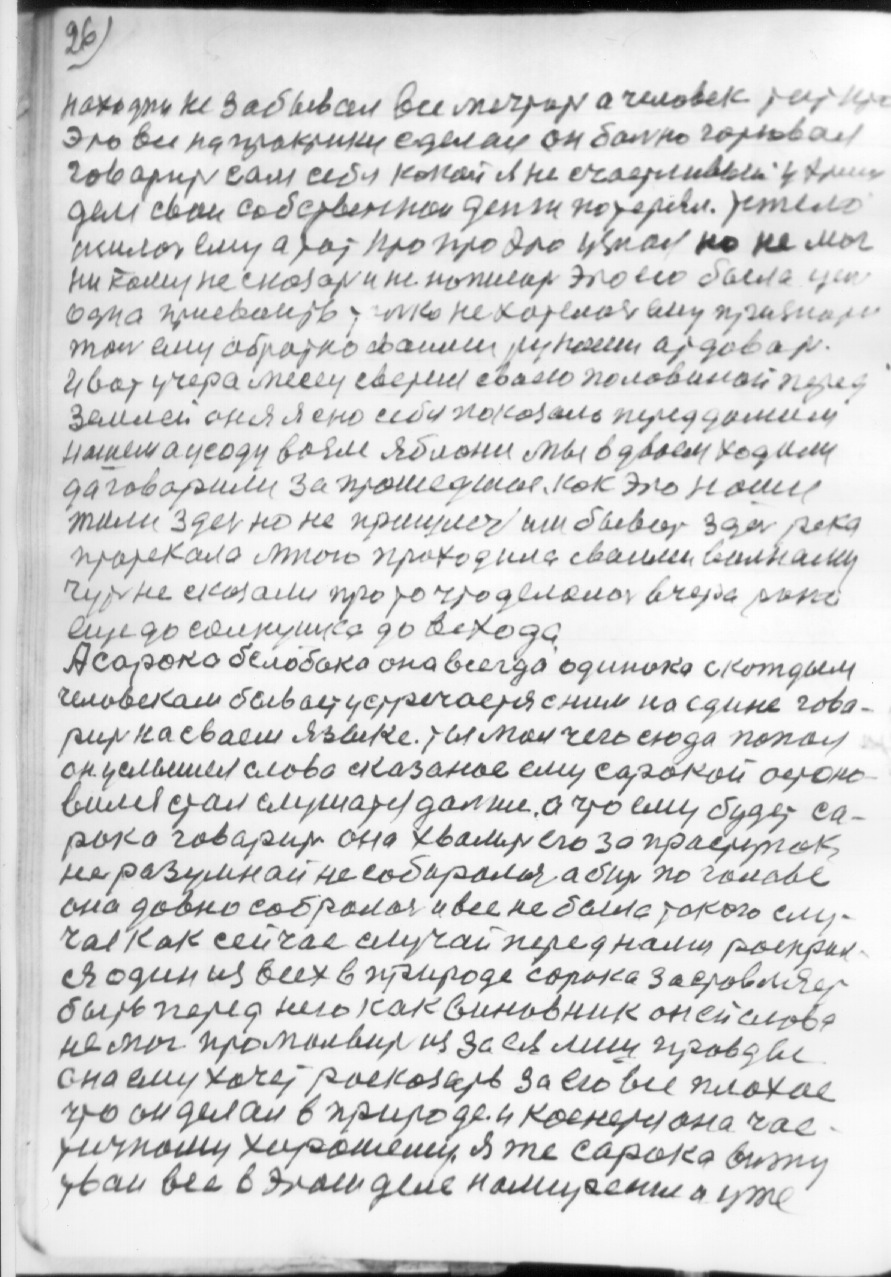 26)
находяи не забывал все мечтат а человек тут
Это все на практики сделал он бално горювал
говарит сам себя какой я не счастливый
дел сваи собственнаи денги потерял. тижело
жилос ему а тот про это узнал но не мог
ни кому не сказат и не написат это его была
одна присвоить толко не хотелос ему признат
тои ему обратно сваими руками атдоват.
И вот учера месец сверил сваею половинай перед
Землей он я ясно себя показал перед домам
нашем а у соду возле яблони мы в двоем ходили
да говарили за прошедшае. как это наши
жили здес но не пришлос им быват здес река
протекала много праходила сваими волнами
чут не сказали про то что делолос вчера рано
еще до солнушка до всхода
А сарока белобока она всегда одинока с кождым
человекам бывает устречается с ним на едине гова-
рит на сваем языке. ты мол чего сюда попал
он услышел слова сказаное ему сарокой остоно-
вился стал слушатя далше. а что ему будет са-
рока говарит она хвалит его за праступак
не разумнай не собиралос а бит по голове
она довно собролос и все не была такого слу-
чая как сейчас случай перед нами
ся один из всех в природе сорока заставляет
быть перед него как виновник он ей слова
не мог промолвит из за ея правды
она ему хочет росказать за его все плохое
что он делал в природе. и коснется она час-
тичному хорошему. я же сарока вижу
тваи все в этом деле намирения уже